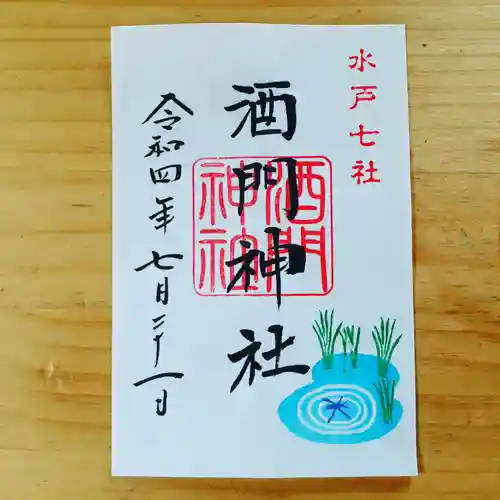 水戸七社
酒門神社
酒門
神社
令和四年
七月二十一日